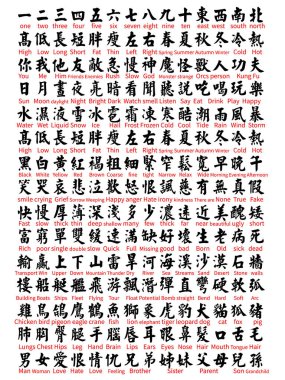 一二三四五六七八九十東西南北
one two three four five six seven eight nine ten east west south north
高低長短胖瘦左右春夏秋冬冷熱
High Low Long Short Fat Thin Left Right Spring Summer Autumn Winter Cold Hot
你我他友敵急慢神魔怪獸人功夫
You Me Him Friends Enemies Rush Slow God Monster strange Orcs person Kung Fu
日月晝夜亮暗看聞聽説吃喝玩樂
Sun Moon daylight Night Bright Dark Watch smell Listen Say Eat Drink Play Happy
水濕液雪冰雹霜凍寒酷潮雨風暴
Water Wet Liquid Snow Ice Hail Frost Frozen Cold Cool Tide Rain Wind Storm
高低長短胖瘦左右春夏秋冬冷熱
High Low Long Short Fat Thin Left Right Spring Summer Autumn Winter Cold Hot
黑白黄紅褐粗細緊窄鬆寬早晚午
Black White Yellow Red Brown Coarse fine tight Narrow Relax Wide Morning Evening Afternoon
笑哭哀悲泣歡怒恨諷無真假
smile crying Grief Sorrow Weeping Happy anger Hate irony Kindness There are None True Fake
快慢厚薄深淺多少遠近美醜
Fast slow thick thin deep shallow many few thick far near beautiful ugly short
單雙全半
Rich poor single double slow Full Half Full Missing good bad Born Old sick dead
輸贏上下山雷旱河海溪沙漠石牆
Transport Win Upper Down Mountain Thunder Dry River Sea Streams Sand Desert Stone walls
船艇艦飛彈彎硬軟弧
Building Boats Ships Fleet Flying Tour Float Potential Bomb straight Bend Hard Soft Arc
雞鳥鴿鷹鶴魚獅象虎豹犬貓狐豬
Chicken bird pigeon eagle crane fish lion elephant tiger leopard dog cat fox pig
肺胸腰肝心脾腦唇耳鼻髮嘴舌
Lungs Chest Hips Leg Hand Liver Heart Brain Lips Ear Nose Hair Mouth Tongue Hair
男女愛恨情仇兄弟姊妹父母孫
Man Woman Love Hate Love Feeling Brother Sister Parent Son Grandchild